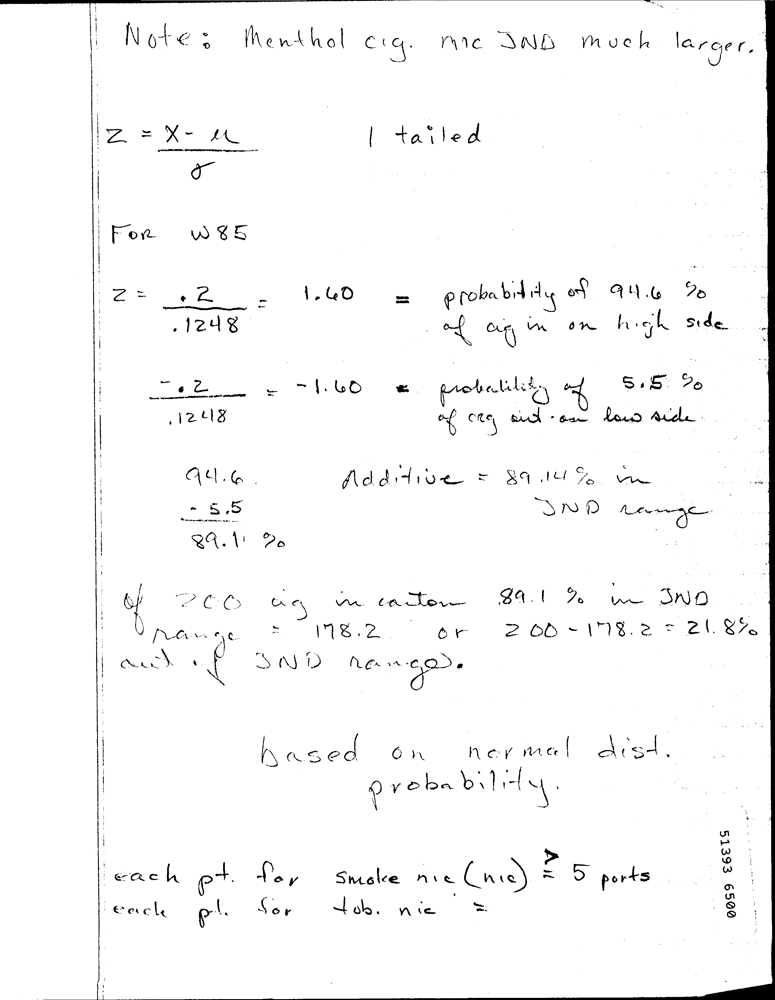 Note: Menthol cig. nic JND much larger.
Z = X - μ 1 tailed
σ
FOR W85
Z = .2 = 1.60 = probability of 94.6 %
.1248 of cig in on high side
-.2 = -1.60 = probability of 5.5 %
.1248 of cig out on low side
94.6 Additive = 89.14% in
- 5.5 JND range
89.1 %
of 200 cig in carton 89.1 % in JND
range = 178.2 or 200 - 178.2 = 21.8%
out of JND range.
based on normal dist.
probability.
each pt. for smoke nic (nic) ≧ 5 ports
each pt. for tob. nic =
51393 6500